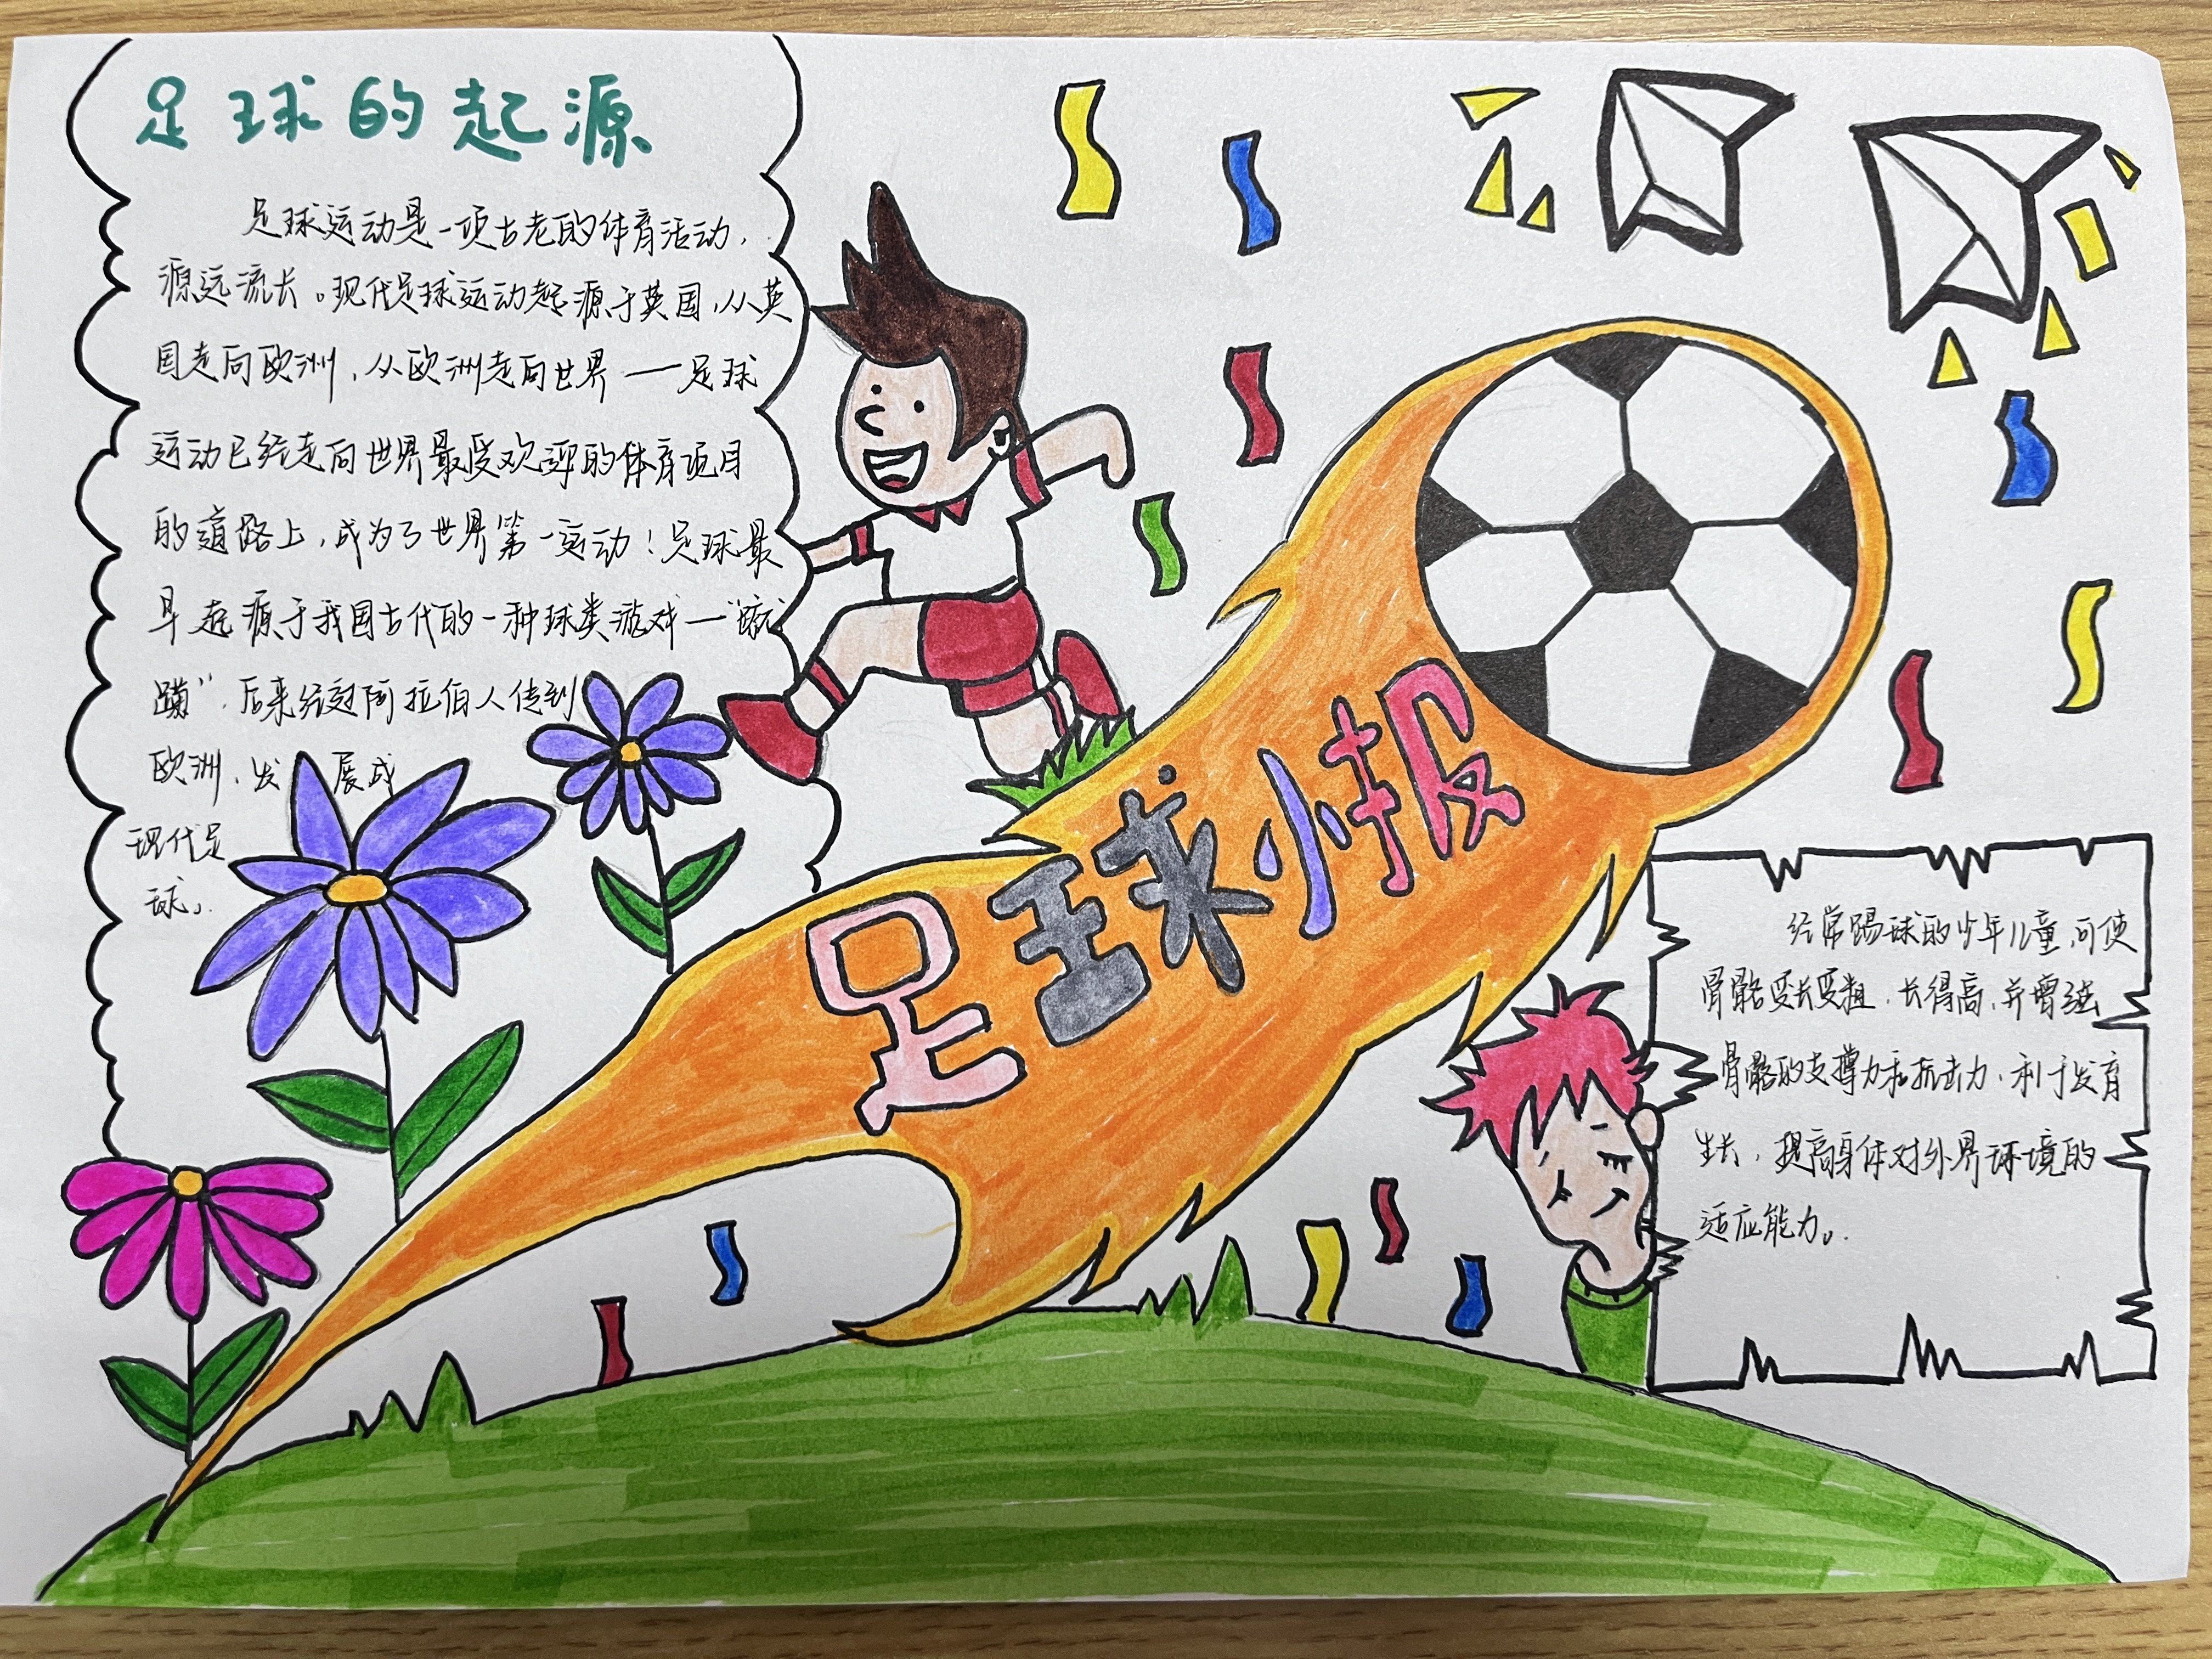 足球的起源
足球运动是一项古老的体育活动,
源远流长。现代足球运动起源于英国,从英
国走向欧洲,从欧洲走向世界——足球
运动已经走向世界最受欢迎的体育项目
的道路上,成为了世界第一运动!足球最
早起源于我国古代的一种球类游戏—“蹴
蹴”,后来经过阿拉伯人传到
欧洲、发展成
现代足
球。
足球小报
经常踢球的少年儿童,可使
骨骼变长变粗,长得高,并增强
骨骼的支撑力和抗击力,利于发育
生长,提高身体对外界环境的
适应能力。